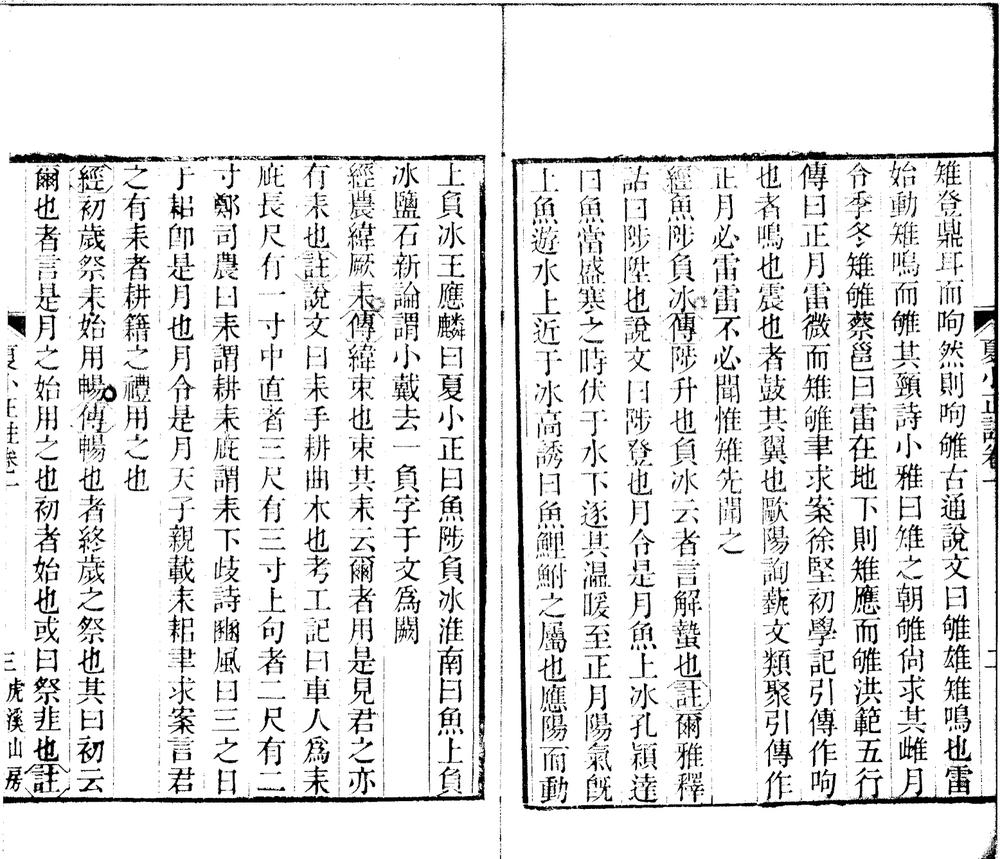 夏小正註卷一
二
雉登鼎耳而呴然則呴雊古通說文曰雊雄雉鳴也雷
始動雉鳴而雊其頸詩小雅曰雉之朝雊尙求其雌月
令季冬雉雊蔡邕曰雷在地下則雉應而雊洪範五行
傳曰正月雷微而雉雊聿求案徐堅初學記引傳作呴
也者鳴也震也者鼓其翼也歐陽詢藝文類聚引傳作
正月必雷雷不必聞惟雉先聞之
經魚陟負冰傳陟升也負冰云者言解蟄也註爾雅釋
詁曰陟陞也說文曰陟登也月令是月魚上冰孔穎達
曰魚當盛寒之時伏于水下逐其溫暖至正月陽氣旣
上魚遊水上近于冰高誘曰魚鯉鮒之屬也應陽而動
上負冰王應麟曰夏小正曰魚陟負冰淮南曰魚上負
冰鹽石新論謂小戴去一負字于文爲闕
經農緯厥耒傳緯束也束其耒云爾者用是見君之亦
有耒也註說文曰耒手耕曲木也考工記曰車人爲耒
庛長尺有一寸中直者三尺有三寸上句者二尺有二
寸鄭司農曰耒謂耕耒庛謂耒下歧詩豳風曰三之日
于耜卽是月也月令是月天子親載耒耜聿求案言君
之有耒者耕籍之禮用之也
經初歲祭耒始用暢傳暢也者終歲之祭也其曰初云
爾也者言是月之始用之也初者始也或曰祭韭也註
夏小正註卷一
三
虎溪山房